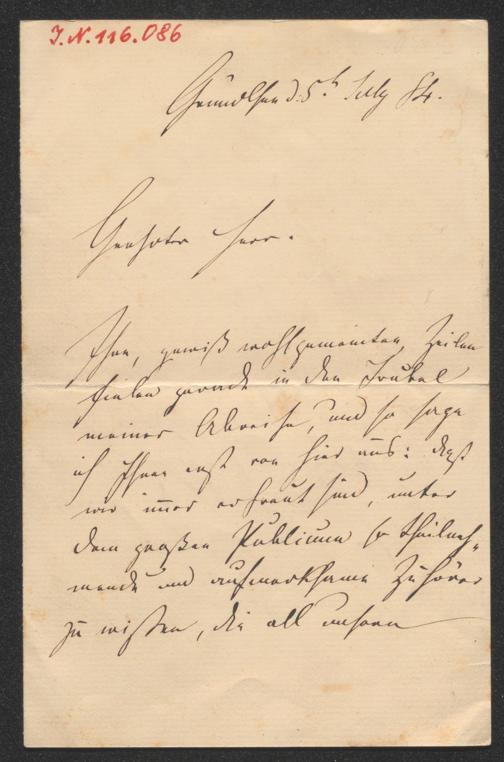 J.N. 116.086
Grundlsee d. 5t July 84.
Geehrter Herr.
Ihre, gewiß wohlgemeinten Zeilen
fielen gerade in den Trubel
meiner Abreise, und so sage
ich Ihnen erst von hier aus: daß
wir immer erfreut sind, unter
dem großen Publicum so theilneh-
mende und aufmerksame Zuhörer
zu wissen, die all unsern